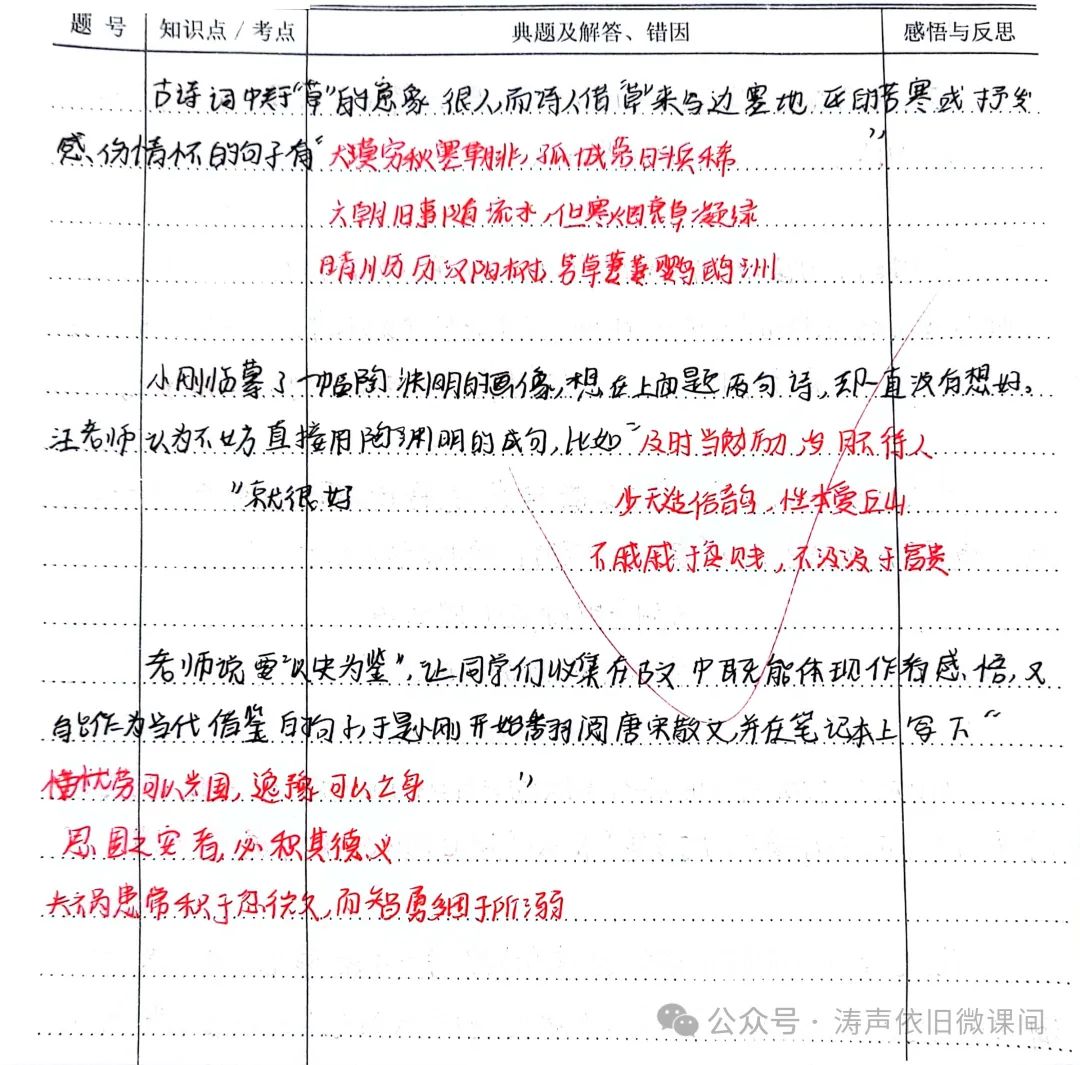 题 号 知识点 / 考点 典题及解答、错因 感悟与反思
古诗词中关于“草”的意象很多,而诗人借“草”来写边塞地 的苦寒或抒发
感伤情怀的句子有“大漠穷秋塞草腓,孤城落日斗兵稀”
六朝旧事随流水,但寒烟衰草凝绿
晴川历历汉阳树,芳草萋萋鹦鹉洲
小刚临摹了一幅陶渊明的画像,想在上面题两句诗,却一直没有想好。
汪老师认为不妨直接用陶渊明的成句,比如“及时当勉励,岁月不待人
”就很好 少无适俗韵,性本爱丘山
不戚戚于贫贱,不汲汲于富贵
老师说要“以史为鉴”,让同学们收集在古文中既能体现作者感悟,又
能作为当代借鉴的句子,于是小刚开始翻阅唐宋散文,并在笔记本上写下“
忧劳可以兴国,逸豫可以亡身 ”
思国之安者,必积其德义
夫祸患常积于忽微,而智勇多困于所溺
公众号·涛声依旧微课间